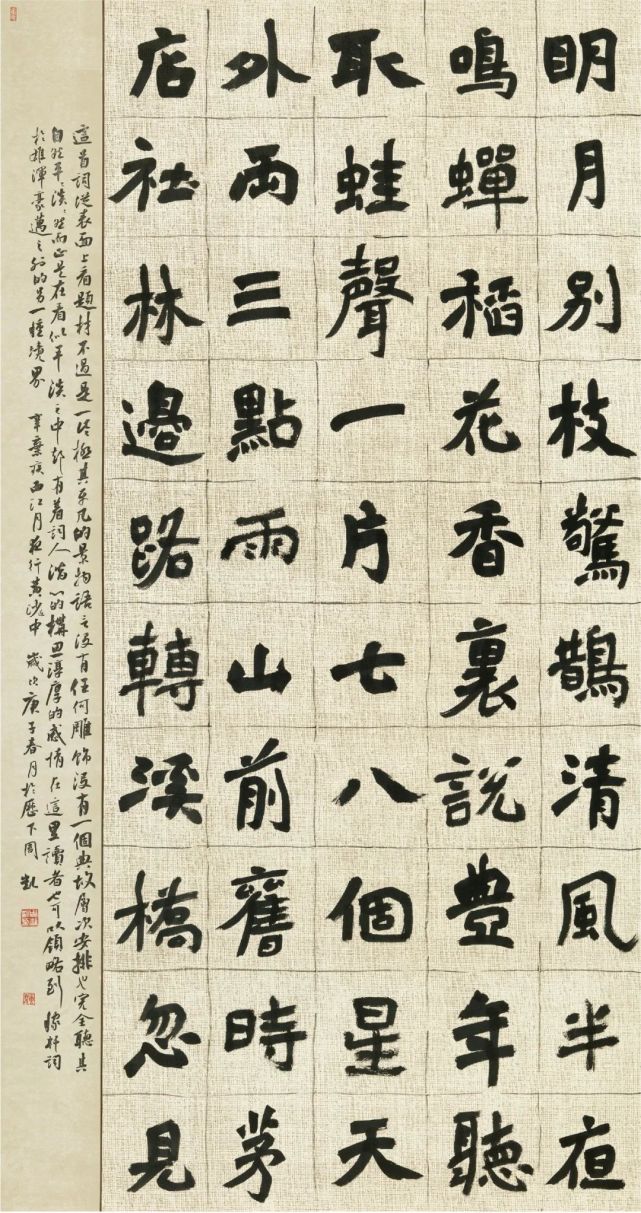 明月别枝驚鵲清風半夜
鳴蟬稻花香裏說豊年聽
取蛙聲一片七八個星天
外兩三點雨山前舊時茅
店社林邊路轉溪橋忽見
這首詞從表面上看題材不過是一些極其平凡的景物語言沒有任何雕飾沒有一個典故層次安排也完全聽其
自然平平淡淡然而正是在看似平淡之中卻有着詞人潛心的構思淳厚的感情在這里讀者也可以領略到稼軒詞
於雄渾豪邁之外的另一種境界 辛棄疾西江月夜行黃沙中 歲次庚子春月於歷下周凱